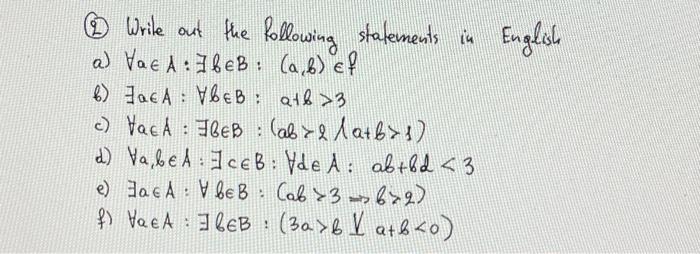 ② Write out the following statements in English
a) ∀a∈A : ∃b∈B : (a,b)∈f
b) ∃a∈A : ∀b∈B : a+b>3
c) ∀a∈A : ∃b∈B : (ab>2 ∧ a+b>1)
d) ∀a,b∈A : ∃c∈B : ∀d∈A : ab+bd<3
e) ∃a∈A : ∀b∈B : (ab>3 ⇒ b>2)
f) ∀a∈A : ∃b∈B : (3a>b ⊻ a+b<0)